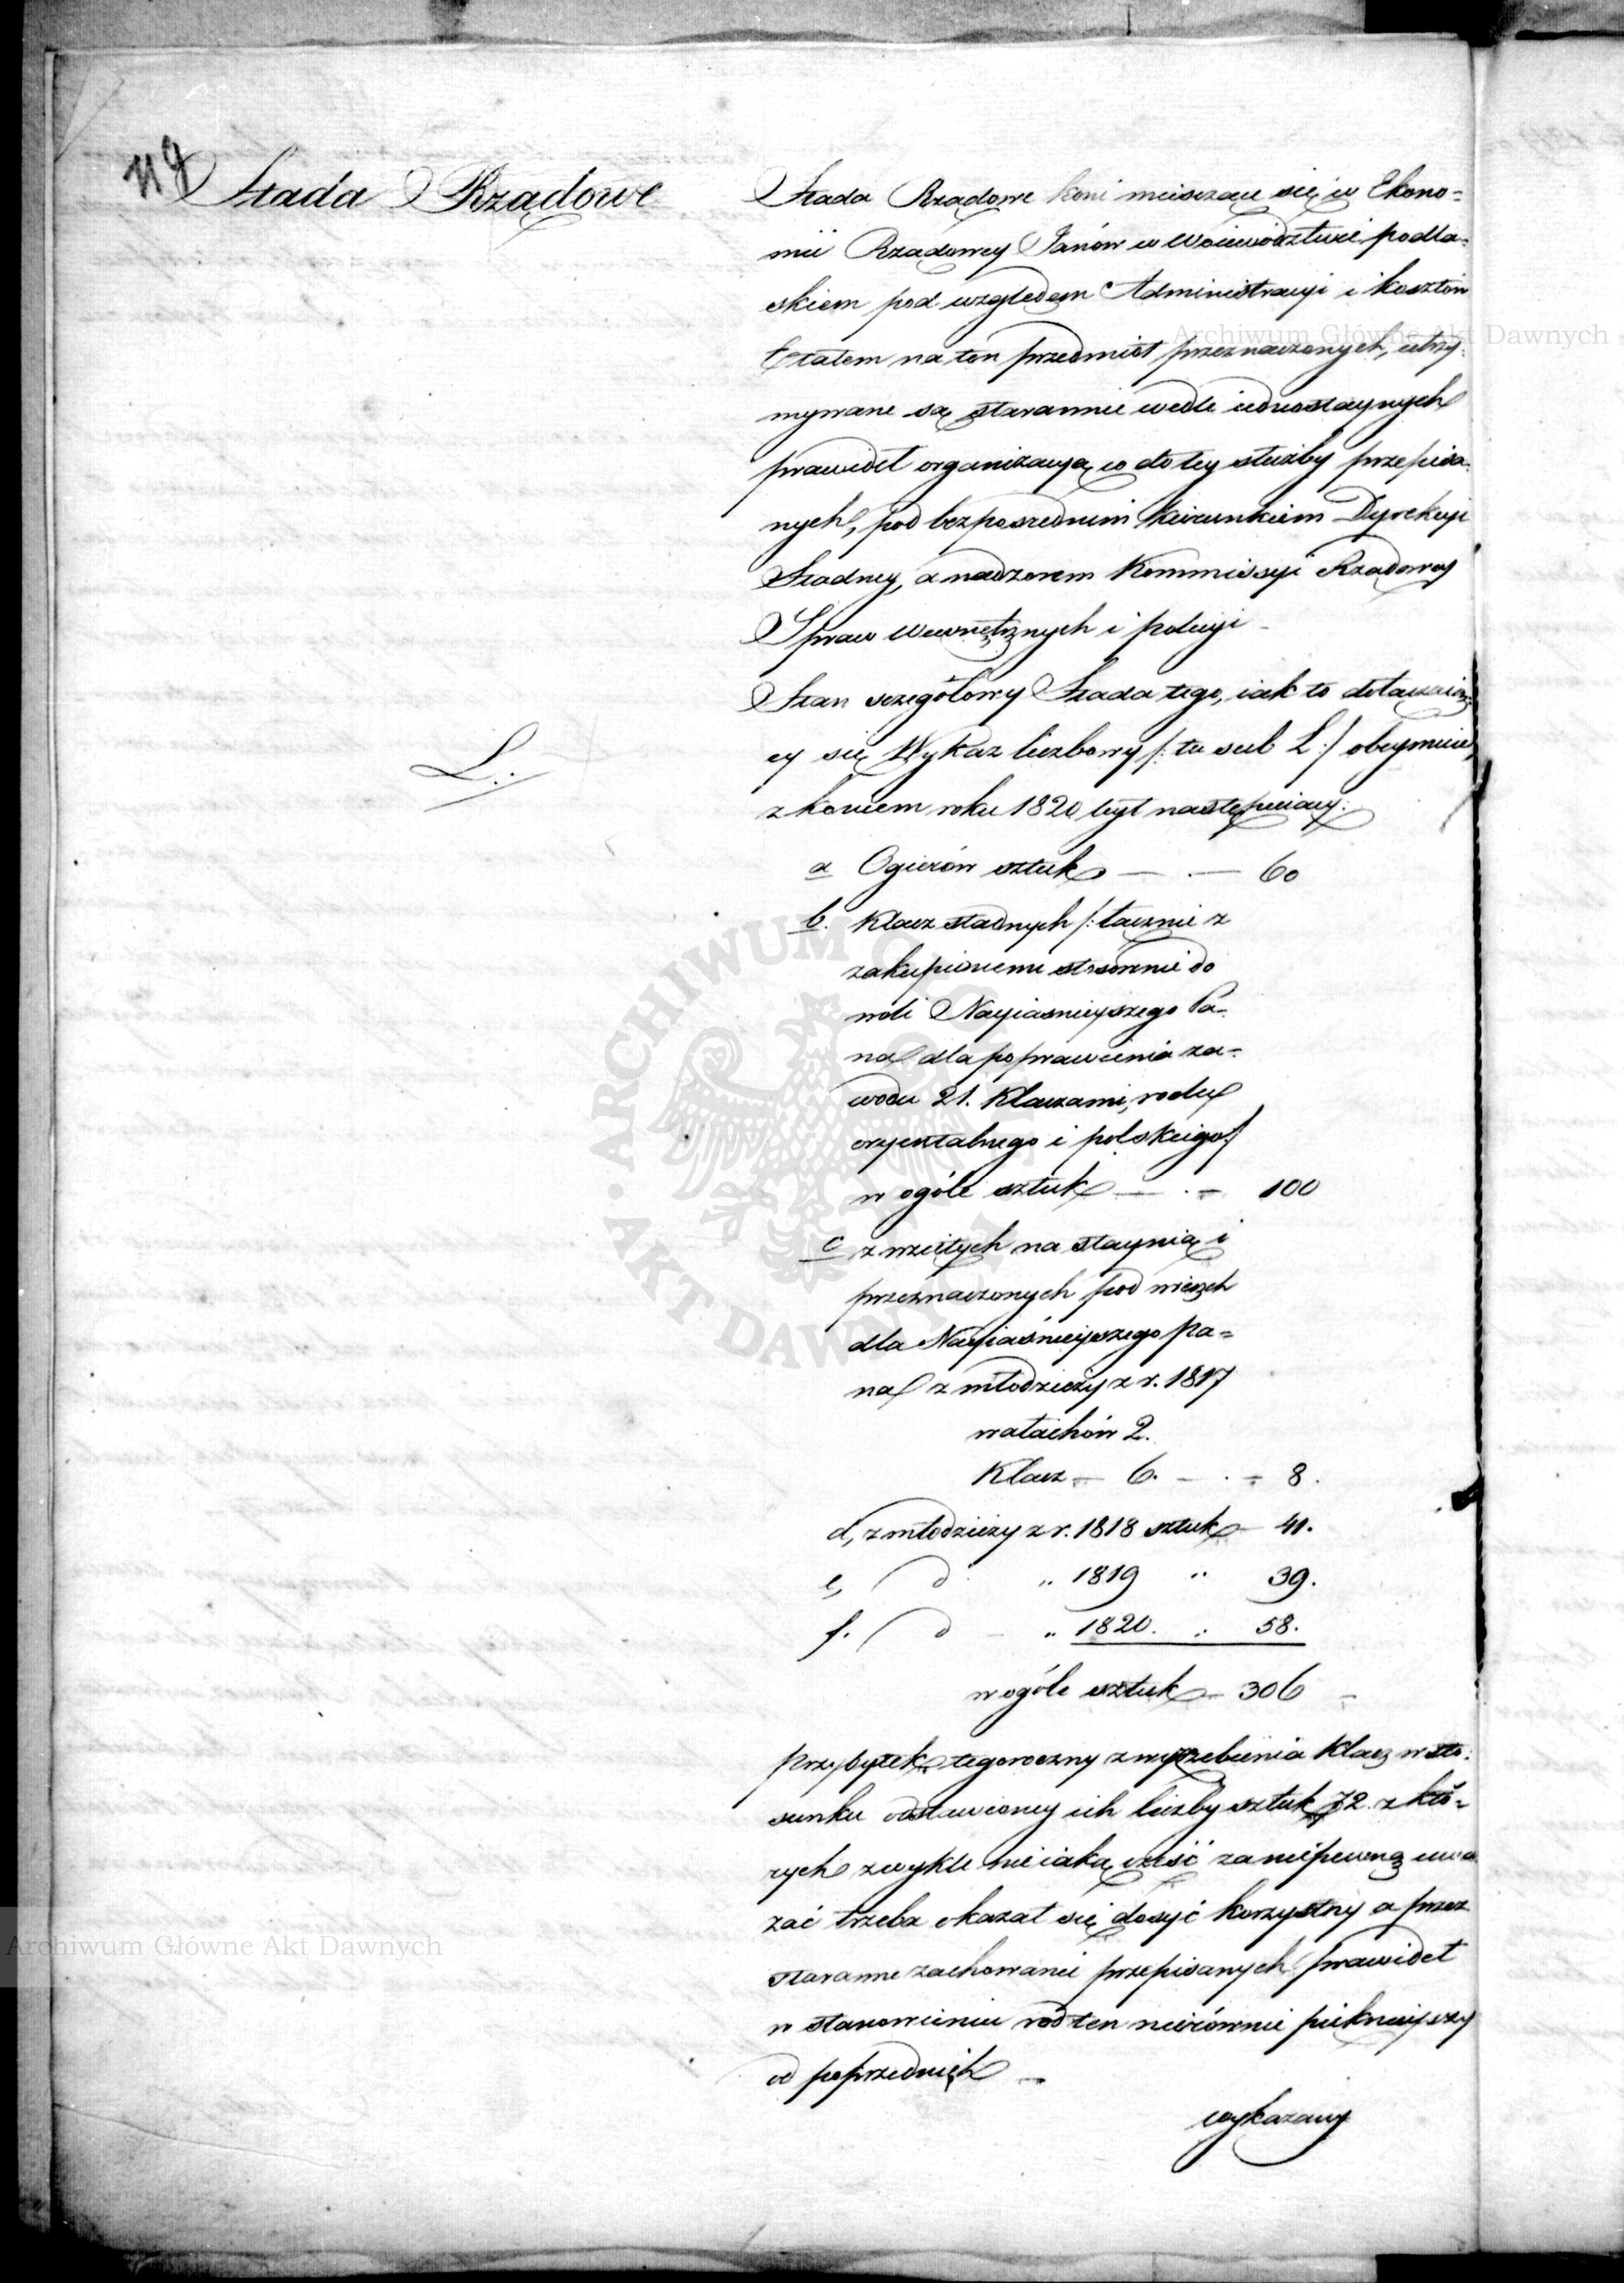 118
Stada Rządowe
Stada Rządowe koni mieszczące się w Ekono=
mii Rządowey Janów w Woiewództwie podla=
skiem pod względem Administracyi i kosztów
Etatem na ten przedmiot przeznaczonych, utrzy=
mywane są starannie wedle iednostaynych
prawideł organizacyą co do tey służby przepisa=
nych, pod bezpośrednim kierunkiem Dyrekcyi
Stadney, a nadzorem Kommissyi Rządowey
Spraw Wewnętrznych i policyi –
Stan szczegółowy Stada tego, iak to dołączaią=
cy się Wykaz liczbowy /: tu sub L :/ obeymuie,
L.
z końcem roku 1820 był następuiący:
a Ogierów sztuk — . — 60
b. Klacz stadnych /: łącznie z
zakupionemi stosownie do
woli Nayiasnieyszego Pa=
na dla poprawienia za=
wodu 21. Klaczami, rodu
oryentalnego i polskiego :/
w ogóle sztuk — . — 100
c z wziętych na staynią i
przeznaczonych pod wierzch
dla Nayiaśnieyszego Pa=
na z młodzieży z r. 1817
wałachów 2.
Klacz – 6. – . – 8.
d, z młodzieży z r. 1818 sztuk – 41.
e, d „ 1819 „ 39.
f. d – „ 1820. „ 58.
w ogóle sztuk – 306 –
Przybytek tegoroczny z wyźrebienia Klacz w sto=
sunku odstawioney ich liczby sztuk 72. z któ=
rych zwykle nieiaką część za niepewną uwa
żać trzeba okazał się dosyć korzystny a przez
staranne zachowanie przepisanych prawideł
w stanowieniu ród ten nierównie pięknieyszy
od poprzednich –
wykazany
Archiwum Główne Akt Dawnych
Archiwum Główne Akt Dawnych
ARCHIWUM GŁÓWNE AKT DAWNYCH